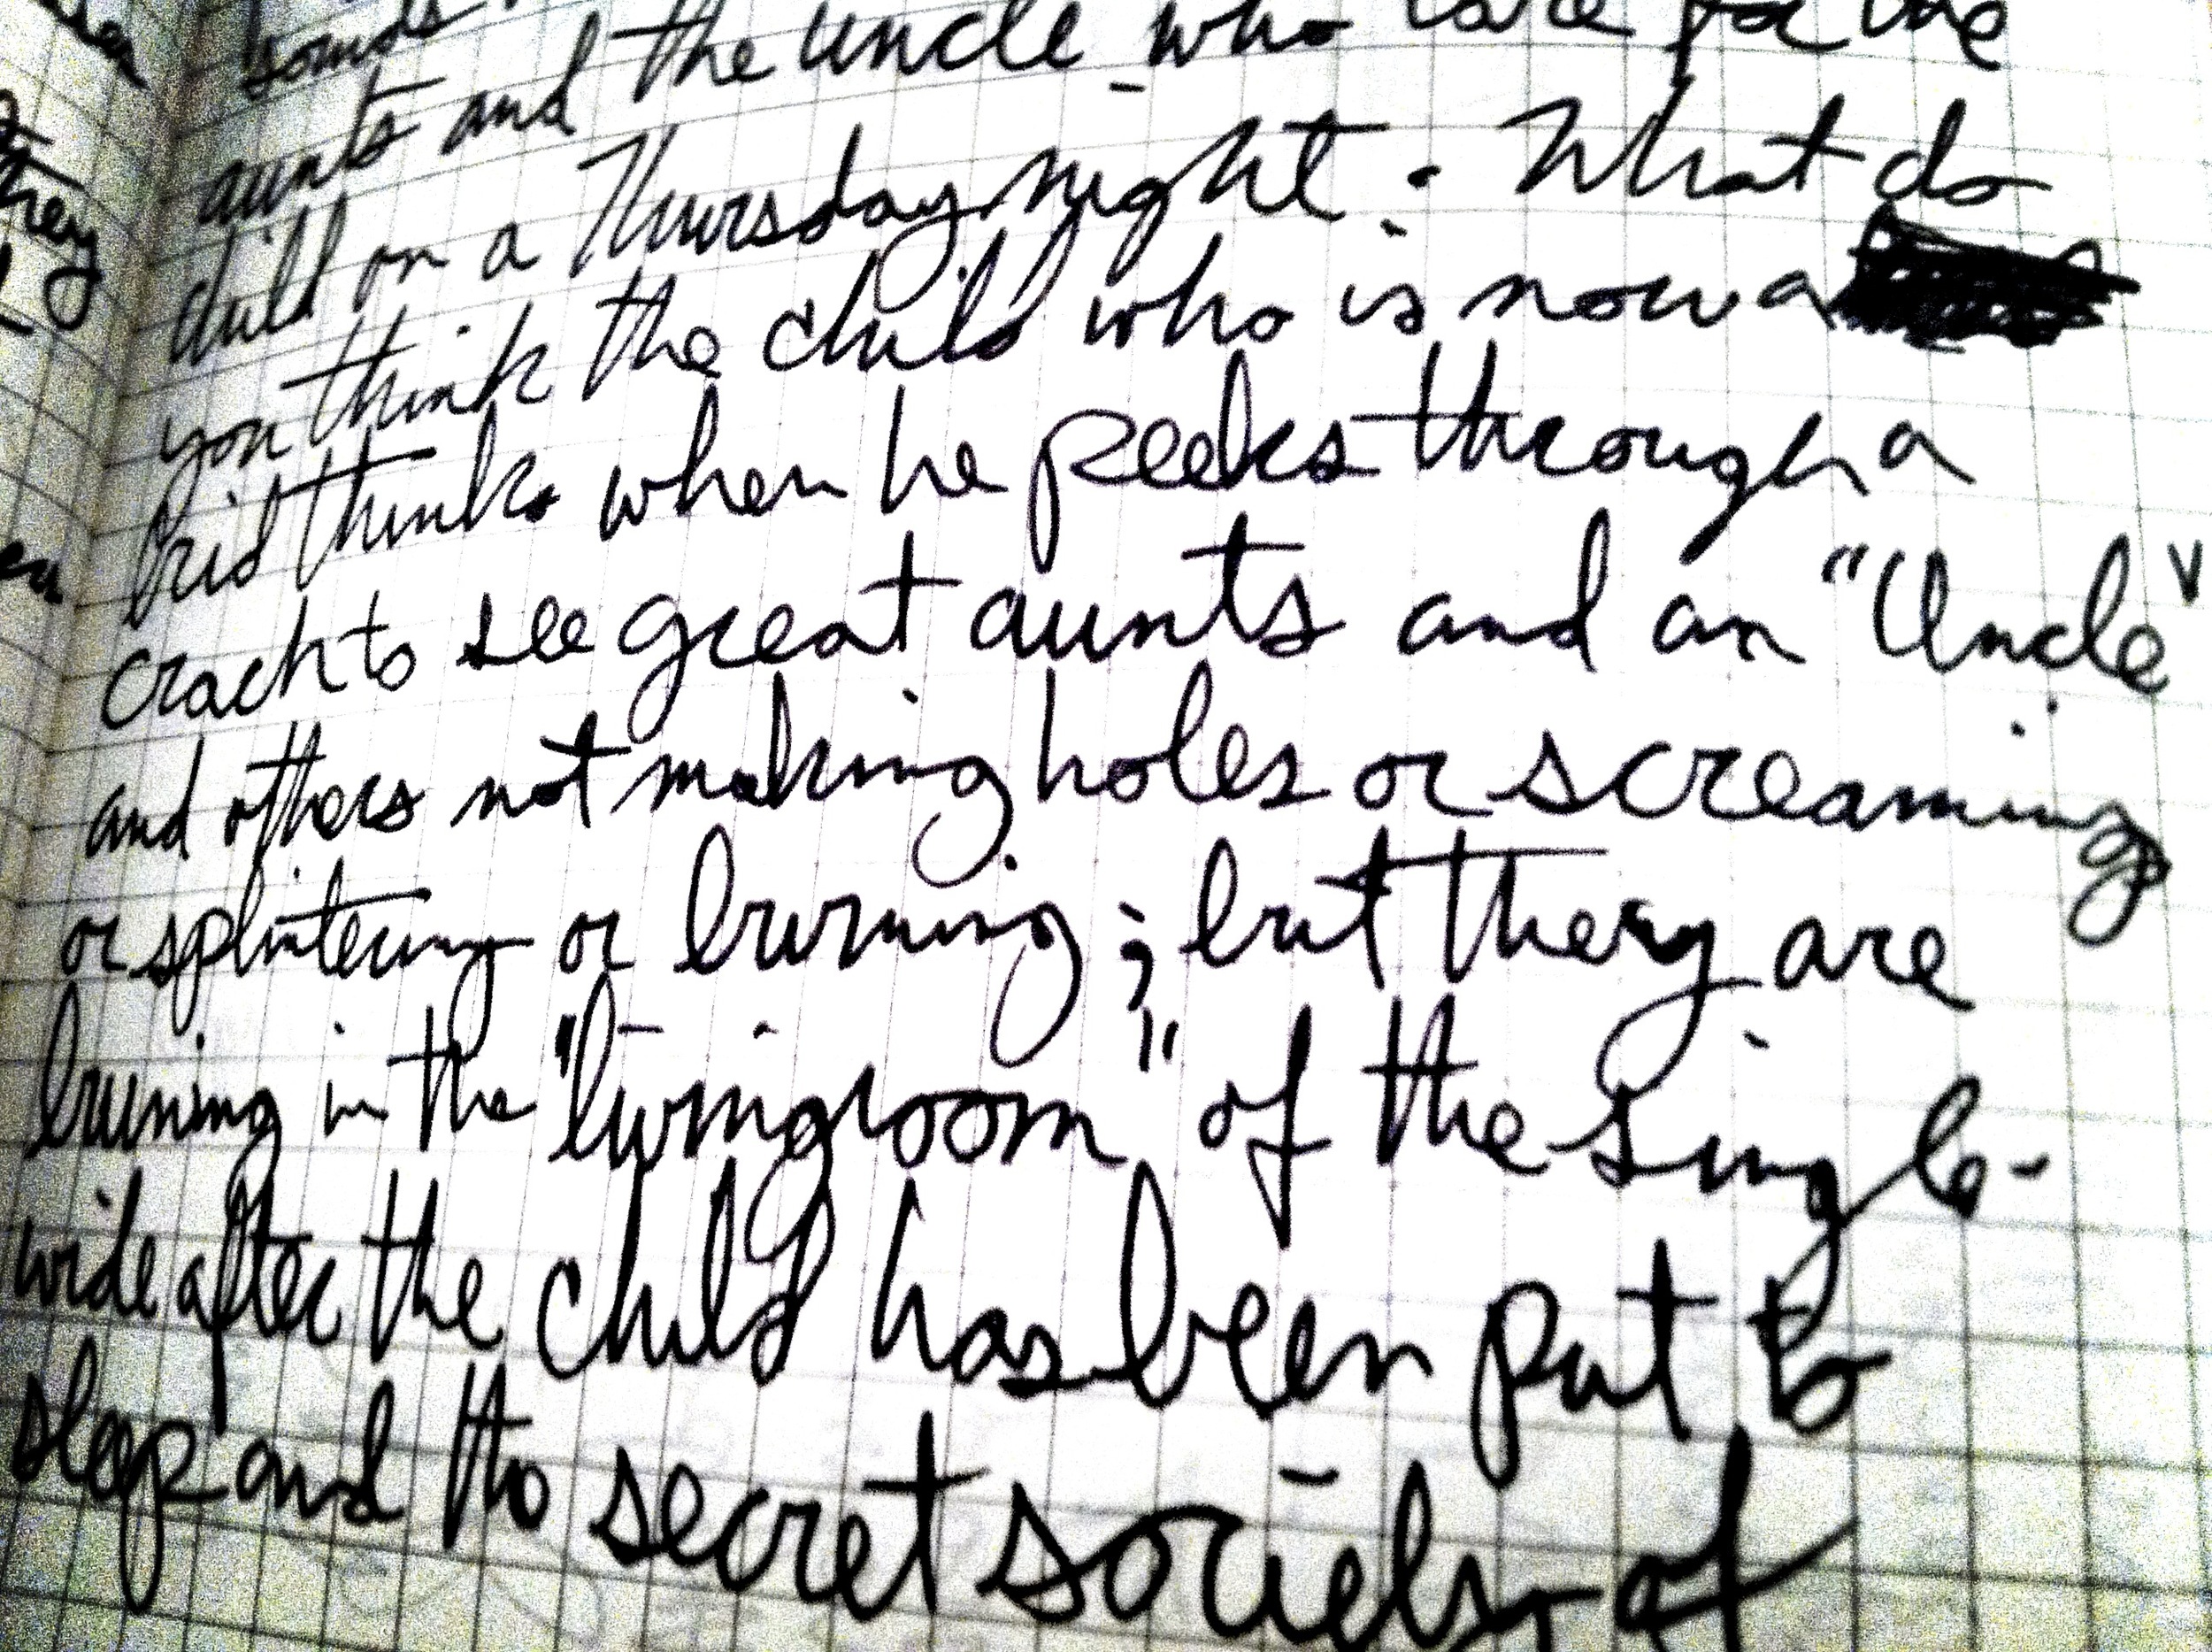 sounds
aunts and the uncle who care for the
child on a Thursday night. What do
you think the child who is now a
kid thinks when he peeks through a
crack to see great aunts and an "Uncle"
and others not making holes or screaming
or splintering or burning; but they are
burning in the "livingroom" of the single-
wide after the child has been put to
sleep and the secret society of